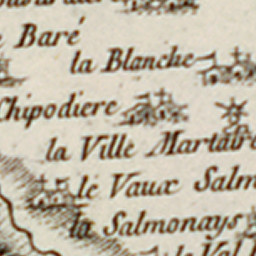 Baré
la Blanche
Chipodiere
la Ville Martaire
le Vaux Salm
la Salmonays
le Val